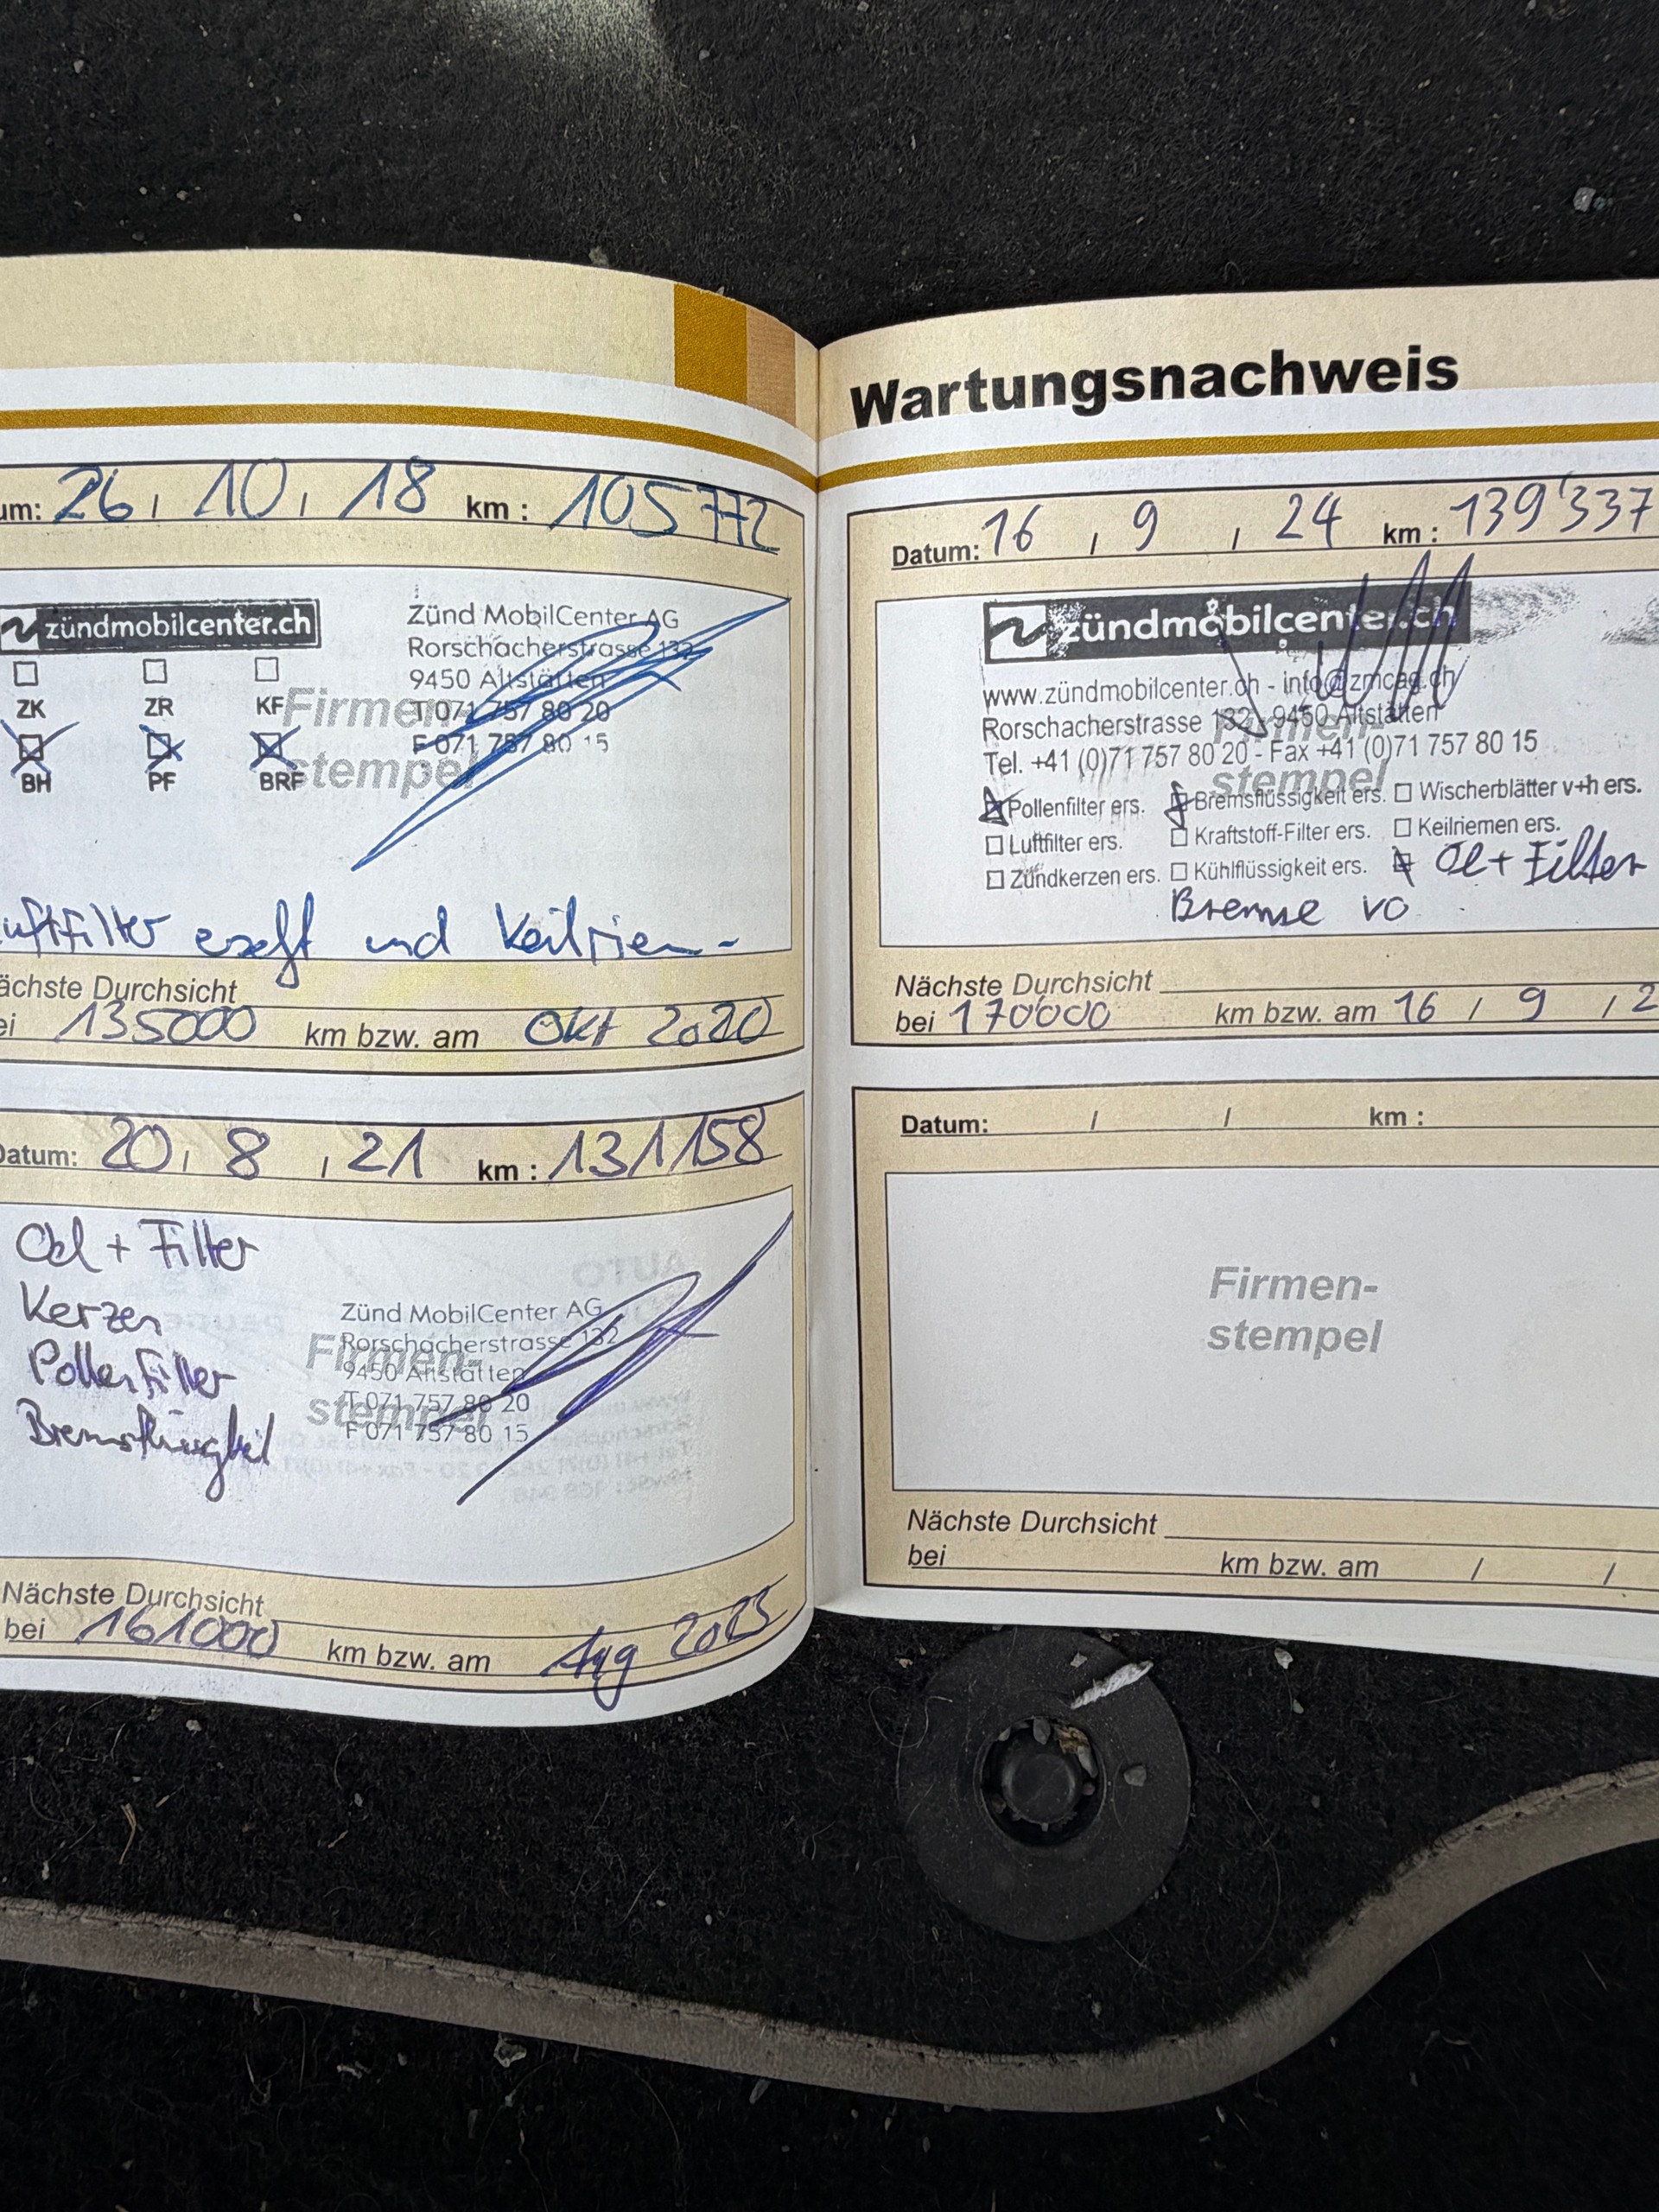 um: 26, 10, 18 km : 105 772
zündmobilcenter.ch
Zünd MobilCenter AG
Rorschacherstrasse 132
9450 Altstätten
T 071 757 80 20
F 071 757 80 15
ZK ZR KF
BH PF BRF
Firmen-
stempel
uftfilter und Keilriem-
ächste Durchsicht
ei 135000 km bzw. am Okt 2020
Datum: 20, 8, 21 km : 131 158
Oel + Filter
Kerzen
Pollenfilter
Zünd MobilCenter AG
Rorschacherstrasse 132
9450 Altstätten
T 071 757 80 20
F 071 757 80 15
Firmen-
stempel
Nächste Durchsicht
bei 161000 km bzw. am Aug 2023
Wartungsnachweis
Datum: 16, 9, 24 km : 139'337
zündmobilcenter.ch
www.zündmobilcenter.ch - info@zmcag.ch
Rorschacherstrasse 132 - 9450 Altstätten
Tel. +41 (0)71 757 80 20 - Fax +41 (0)71 757 80 15
Firmen-
stempel
Pollenfilter ers. Bremsflüssigkeit ers. Wischerblätter v+h ers.
Luftfilter ers. Kraftstoff-Filter ers. Keilriemen ers.
Zündkerzen ers. Kühlflüssigkeit ers. Oel + Filter
Bremse vo
Nächste Durchsicht
bei 170'000 km bzw. am 16 / 9 / 2
Datum: / / km :
Firmen-
stempel
Nächste Durchsicht
bei km bzw. am / /